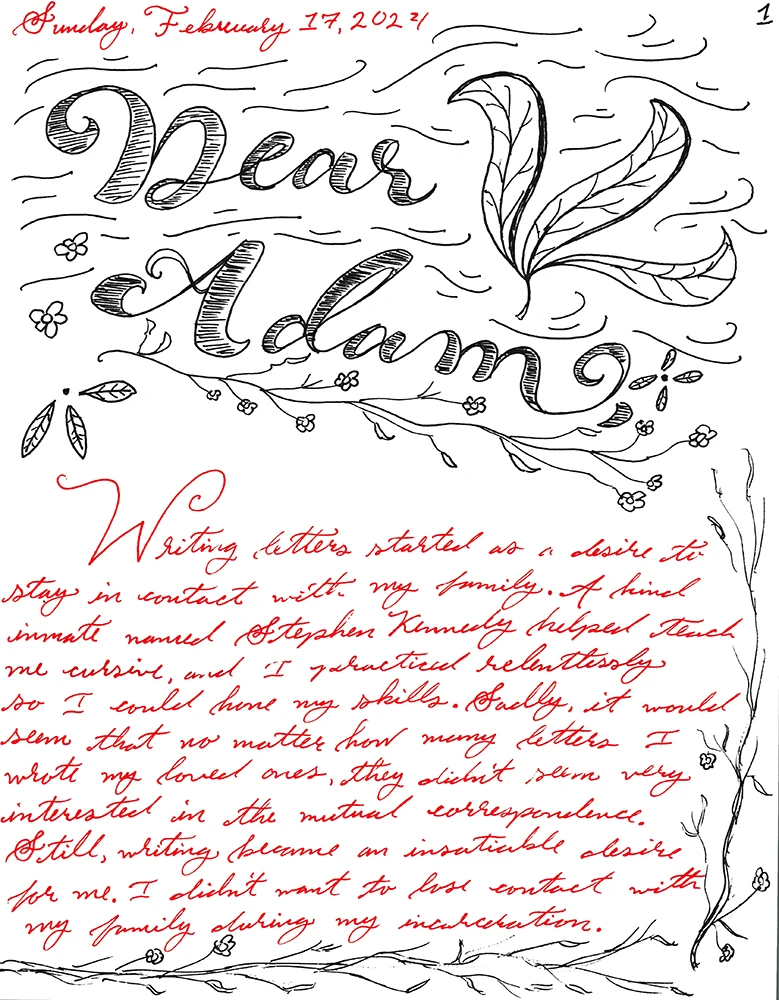 Sunday, February 17, 2024
1
Dear
Adam,
Writing letters started as a desire to
stay in contact with my family. A kind
inmate named Stephen Kennedy helped teach
me cursive, and I practiced relentlessly
so I could hone my skills. Sadly, it would
seem that no matter how many letters I
wrote my loved ones, they didn't seem very
interested in the mutual correspondence.
Still, writing became an insatiable desire
for me. I didn't want to lose contact with
my family during my incarceration.